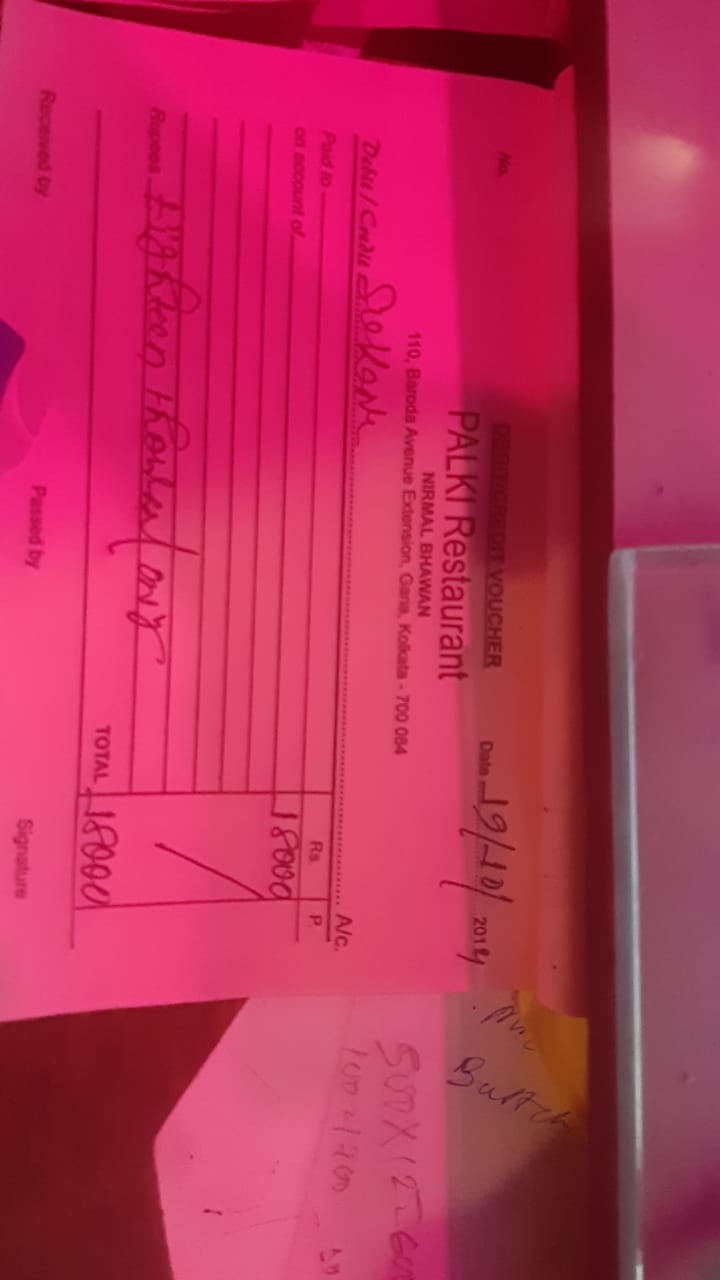 No.
DEBIT/CREDIT VOUCHER
Date 19/10/ 2014
PALKI Restaurant
NIRMAL BHAWAN
110, Baroda Avenue Extension, Garia, Kolkata - 700 084
Debit / Credit A/c.
Paid to
on account of
Rs. P.
18000
Rupees Eighteen thousand only
TOTAL 18000
Received by Passed by Signature
500X12=600